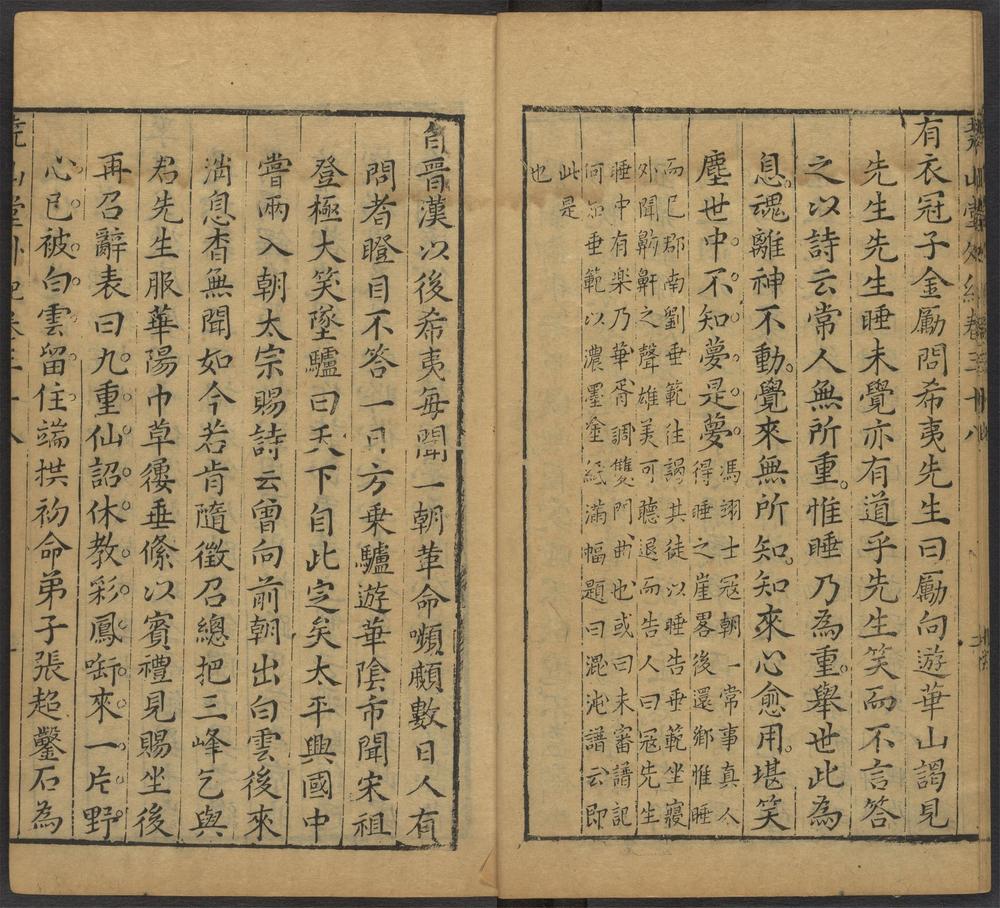 有衣冠子金勵問希夷先生曰勵向遊華山謁見
先生先生睡未覺亦有道乎先生笑而不言答
之以詩云常人無所重惟睡乃為重舉世此為
息魂離神不動覺來無所知知來心愈用堪笑
塵世中不知夢是夢
馮翊士冦朝一常事真人
得睡之崖畧後還鄉惟睡
而已郡南劉垂範往謁其徒以睡告垂範坐寢
外聞齁鼾之聲雄美可聽退而告人曰冦先生
睡中有楽乃華胥調雙門曲也或曰未審譜記
何如垂範以濃墨塗紙滿幅題曰混沌譜云即
此是
也
自晋漢以後希夷每聞一朝革命嚬顣數日人有
問者瞪目不答一日方乗驢遊華陰市聞宋祖
登極大笑墜驢曰天下自此定矣太平興國中
嘗兩入朝太宗賜詩云曾向前朝出白雲後來
消息杳無聞如今若肯隨徵召總把三峰乞與
君先生服華陽巾草屨垂絛以賓禮見賜坐後
再召辭表曰九重仙詔休教彩鳳啣來一片野
心已被白雲留住端拱初命弟子張超鑿石為